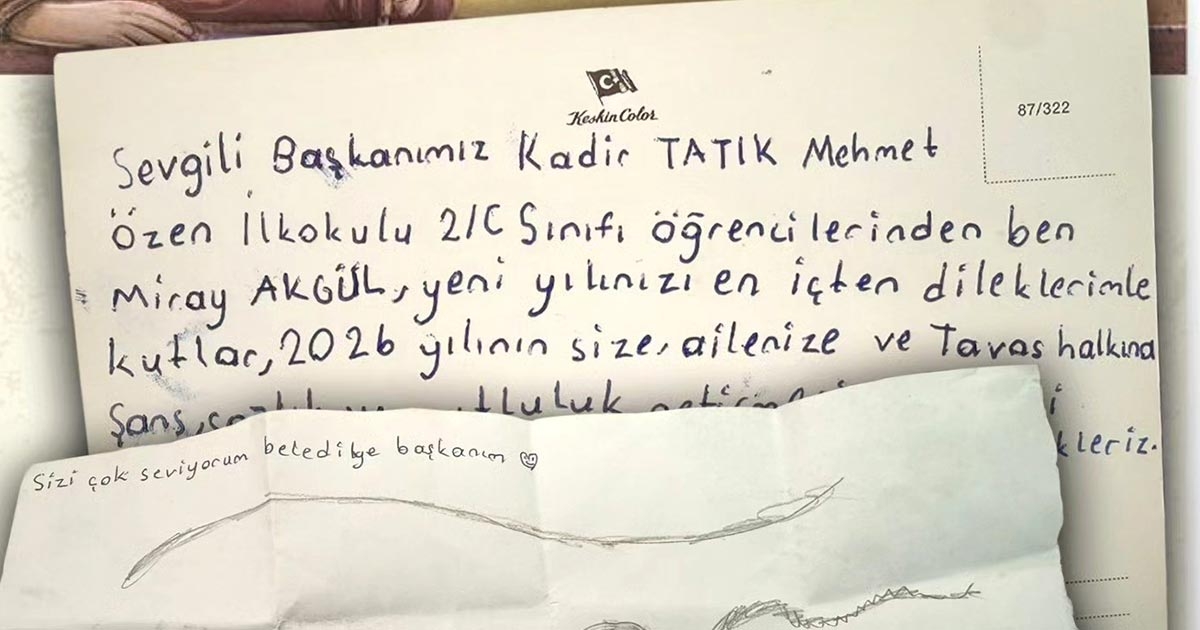 Keskin Color
87/322
Sevgili Başkanımız Kadir TATIK Mehmet
Özen İlkokulu 2/C Sınıfı öğrencilerinden ben
Miray AKGÜL, yeni yılınızı en içten dileklerimle
kutlar, 2026 yılının size, ailenize ve Tavas halkına
Şans,
kleriz.
Sizi çok seviyorum beledilye başkanım